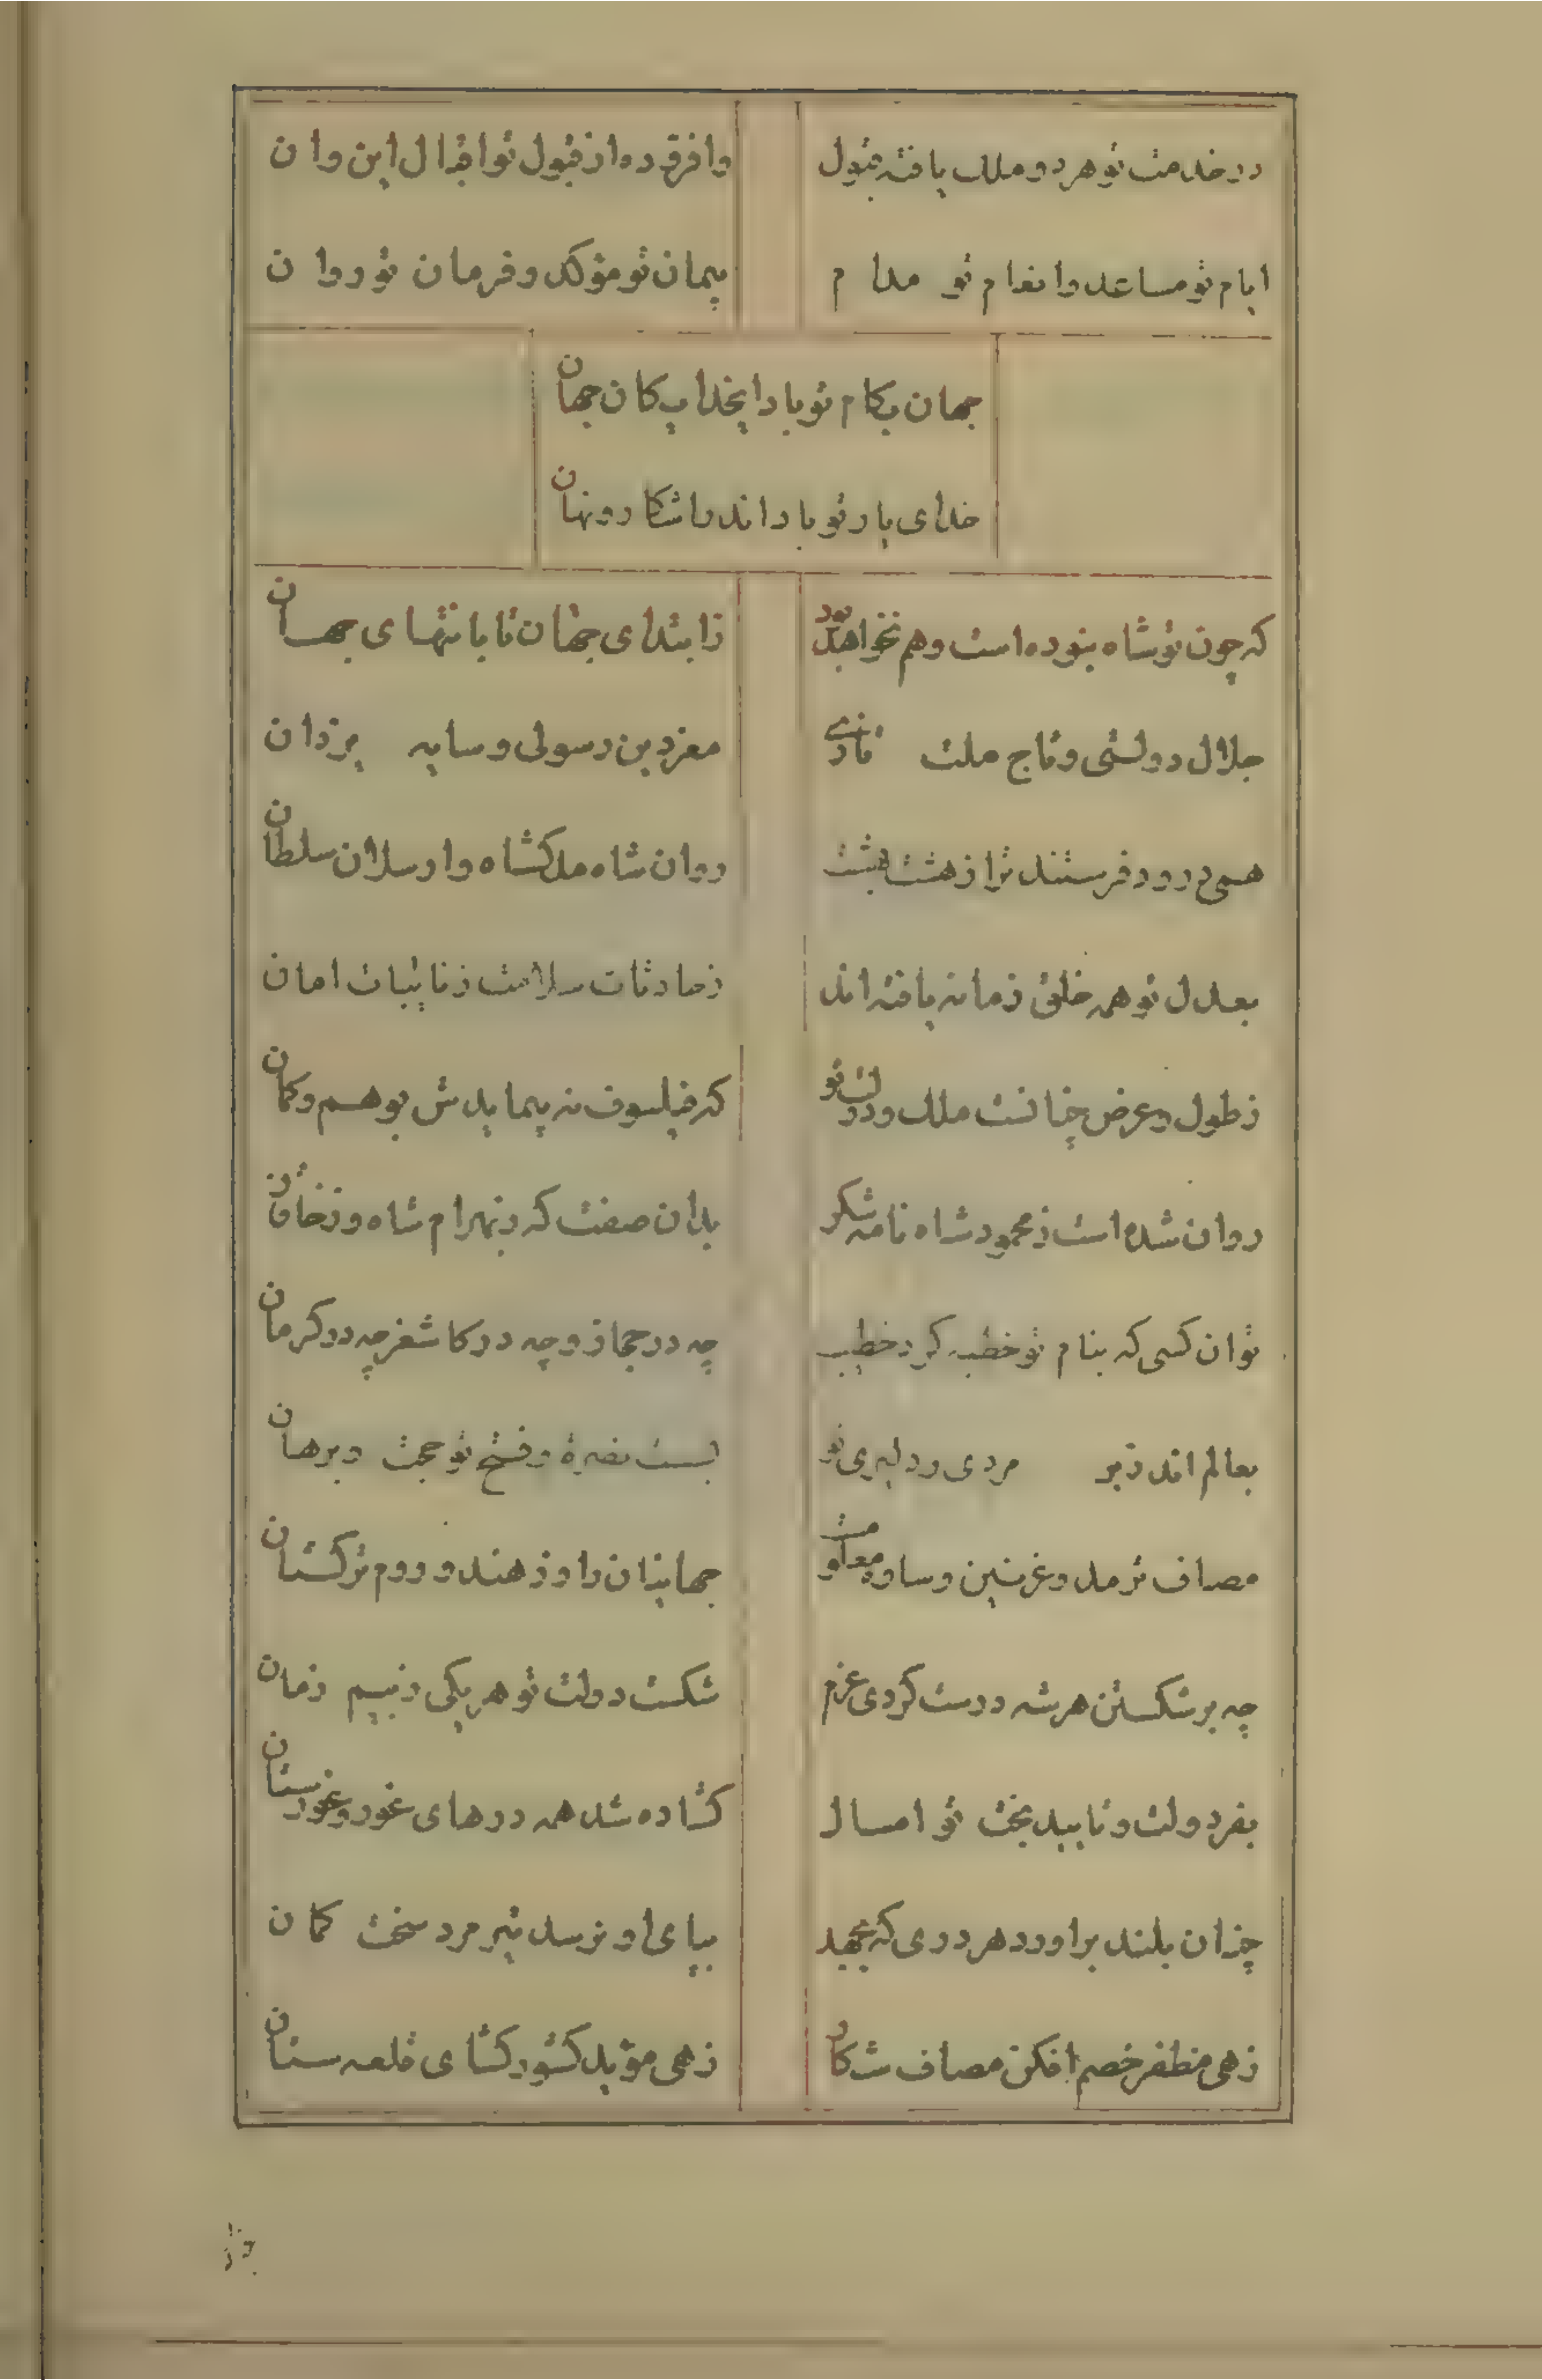 در خدمت تو هر دو ملک یافته قبول
وافزوده از قبول تو اقبال این و آن
ایام تو مساعد و انعام تو مدام
پیمان تو مؤکد و فرمان تو روان
جهان بکام تو باد ایخدایگان جهان
خدای یار تو باد اندر اشکار و نهان
که چون تو شاه نبوده است و هم نخواهد بود
ز ابتدای جهان تا بانتهای جهان
جلال دولتی و تاج ملت تازی
معز دین رسولی و سایه یزدان
همی درود فرستند ترا ز هشت بهشت
روان شاه ملکشاه و ارسلان سلطان
بعدل تو همه خلق زمانه یافته اند
ز حادثات سلامت ز نایبات امان
ز طول و عرض چنانست ملک و دولت تو
که فیلسوف نه پیمایدش بوهم و کمان
روان شده است ز محمود شاه نامه شکر
بدان صفت که ز بهرام شاه و ز خاقان
تو ان کسی که بنام تو خطبه کرد خطیب
چه در حجاز و چه در کاشغر چه در کرمان
بعالم اندر بر مردی و دلیری تو
بست نصرة و فتح تو حجت و برهان
مصاف ترمد و غزنین و ساوه معلومت
جهانیان را و ز هند و روم ترکستان
چه بر شکستن هر شه درست کردی عزم
شکست دولت تو هر یکی ز نیم زمان
بفر دولت و تایید بخت تو امسال
کشاده شد همه درهای غور و غورستان
چنان بلند براورد هر دری که بجهد
بپای او نرسد تیر مرد سخت کمان
زهی مظفر خصم افکن مصاف شکار
زهی مؤید کشور کشای قلعه ستان